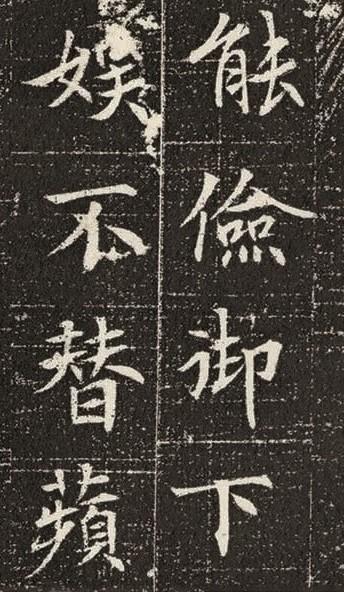 能儉御下
娛不替蘋